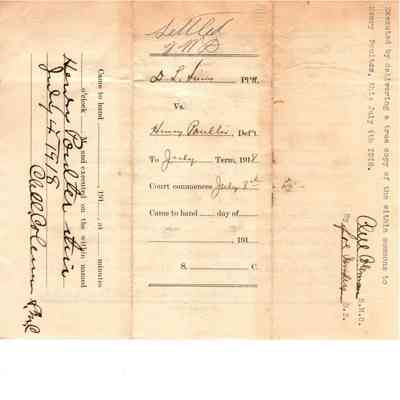 Settled
D L
Pltff.
Vs.
Henry Poulter, Def't.
To July Term, 1918
Court commences July 8
Came to hand ____ day of
____, 191__
S. C.
Came to hand ____ 191__, at ____ minutes
____ o'clock ____ M., and executed on the within named
Henry Poulter
July 4 1918
Chas Coleman
Executed by delivering a true copy of the within summons to
Henry Poulter, this July 4th 1918.
Coleman S.M.C.
By Joe D.S.